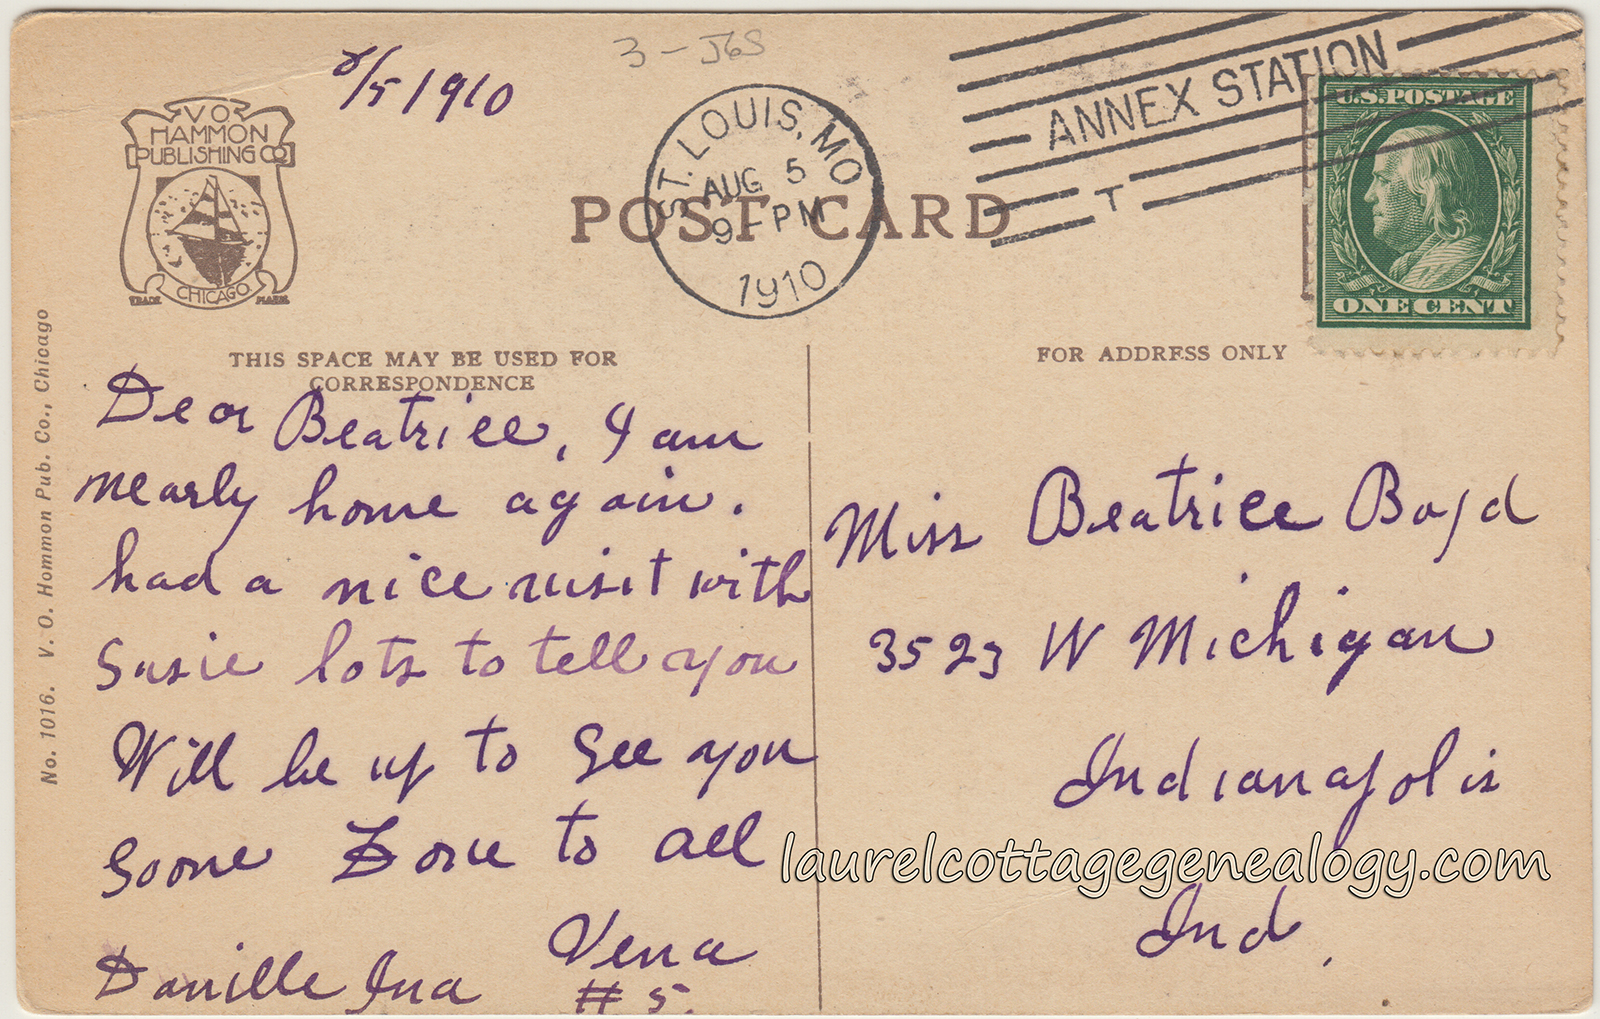 8/5/1910
3 - J6S
V O
HAMMON
PUBLISHING CO
CHICAGO
TRADE MARK
ST. LOUIS, MO
AUG 5
9 - PM
1910
ANNEX STATION
T
U.S. POSTAGE
ONE CENT
POST CARD
THIS SPACE MAY BE USED FOR
CORRESPONDENCE
FOR ADDRESS ONLY
No. 1016. V. O. Hommon Pub. Co., Chicago
Dear Beatrice, I am
nearly home again.
had a nice visit with
Susie lots to tell you
Will be up to see you
soone Love to all
Vena
Danille Ina
# 5.
Miss Beatrice Boyd
3523 W Michigan
Indianapolis
Ind.
laurelcottagegenealogy.com